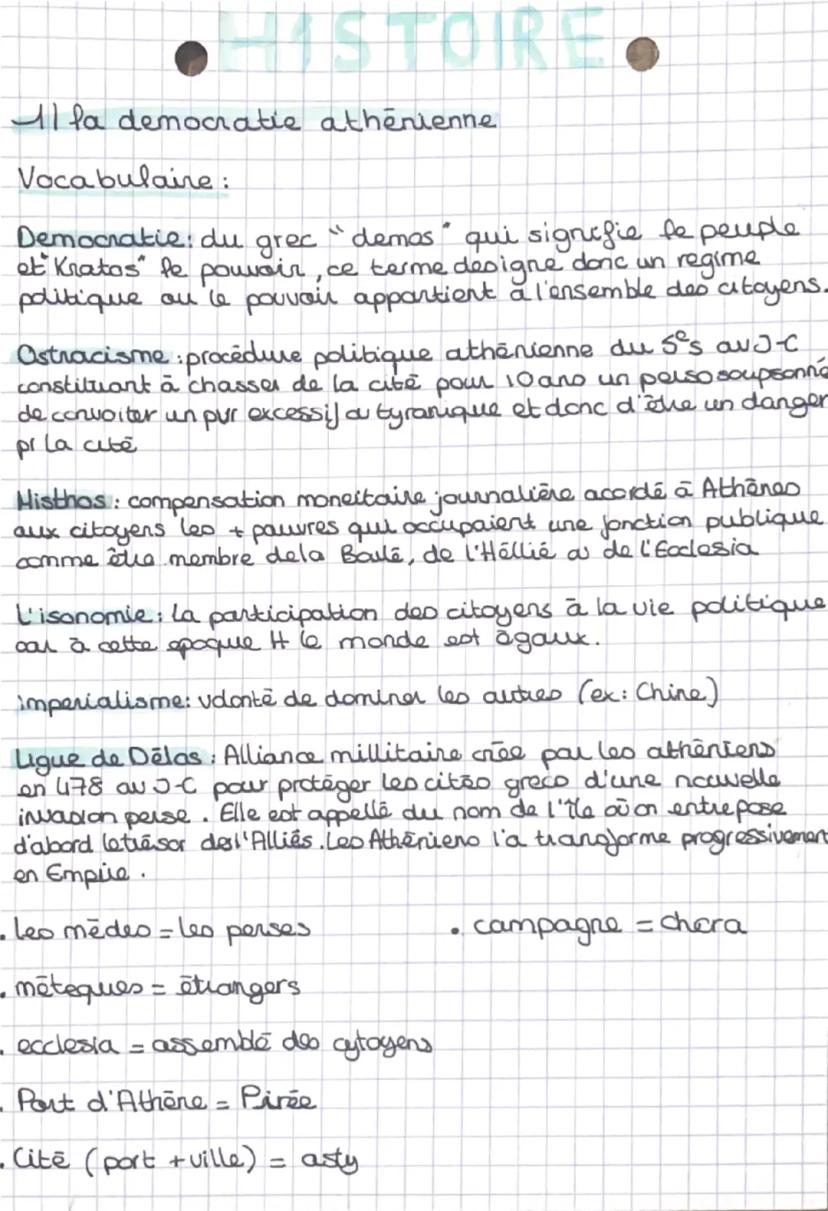 HISTOIRE
1) la democratie athēnienne
Vocabulaire :
Democratie: du grec "demos" qui signifie le peuple
et "Kratos" le pouvoir, ce terme designe donc un regime
politique ou le pouvoir appartient à l'ensemble des citoyens.
Ostracisme : procēdure politique athēnienne du 5es av J-C
constituant ā chasser de la citē pour 10 ans un perso soupsonnē
de convoiter un pvr excessif ou tyranique et donc d'ētre un danger
pr la citē
Misthos : compensation moneitaire journaliēre acordē ā Athēnes
aux citoyens les + pauvres qui occupaient une fonction publique
comme ētre membre dela Boulē, de l'Hēlliē ou de l'Ecclesia
L'isonomie : la participation des citoyens ā la vie politique
car ā cette epoque tt le monde est ēgaux.
imperialisme: volontē de dominer les autres (ex: Chine)
Ligue de Dēlos : Alliance millitaire crēe par les athēniens
en 478 av J-C pour protēger les citēs grecs d'une nouvelle
invasion perse. Elle est appellē du nom de l'île où on entrepose
d'abord le trēsor des l'Alliēs. Les Athēniens l'a transforme progressivement
en Empire.
. les mēdes = les perses
. campagne = chora
. mēteques = ētrangers
. ecclesia = assemblē des cytoyens
. Port d'Athēne = Pirēe
. Citē (port + ville) = asty